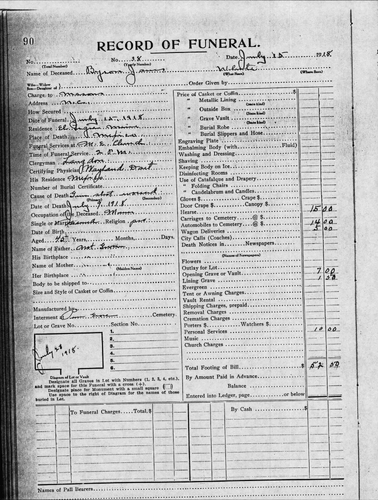 90
RECORD OF FUNERAL.
No. No. 18 Date July 15 1918
(Total Number) (Yearly Number)
Name of Deceased Byron James White
(What Race) (Where Born)
Charge to Masons
Address
How Secured
Date of Funeral July 15, 1918
Residence
Place of Death
Funeral Services at M. E. Church
Time of Funeral Service 2 P.M.
Clergyman
Certifying Physician
His Residence
Number of Burial Certificate
Cause of Death Gun shot wound
Date of Death July 9 1918
Occupation of the Deceased
Single or Married Religion
Date of Birth
Aged 42 Years, Months, Days
Name of Father
His Birthplace
Name of Mother
Her Birthplace (Maiden Name)
Body to be shipped to
Size and Style of Casket or Coffin
Manufactured by
Interment at Cemetery
Lot or Grave No. Section No.
July 28 1918.
Diagram of Lot or Vault
Designate all Graves in Lot with Numbers (1, 2, 3, 4, etc.),
and mark space for this Funeral with a cross (+).
Designate place for Monument with a small square
Use space to right of Diagram for names of those
buried in Lot.
Order given by
Price of Casket or Coffin $
" Metallic Lining
(State Kind)
" Outside Box
(State Kind)
" Grave Vault
(State Kind)
" Burial Robe
" Burial Slippers and Hose
Engraving Plate
Embalming Body (with Fluid)
Washing and Dressing
Shaving
Keeping Body on Ice
Disinfecting Rooms
Use of Catafalque and Drapery
" Folding Chairs
" Candelabrum and Candles
Gloves $ Crape $
Door Crape $ Canopy $
Hearse 15 00
Carriages to Cemetery @ $
Automobiles to Cemetery @ $ 14 00
Wagon Deliveries 5 00
City Calls (Coaches)
Death Notices in Newspapers
(Name of Newspapers)
Flowers
Outlay for Lot
Opening Grave or Vault 7 00
Lining Grave 1 00
Evergreen
Tent or Awning Charges
Vault Rental
Shipping Charges, prepaid
Removal Charges
Cremation Charges
Porters $ Watchers $
Personal Services 10 00
Music
Church Charges
Total Footing of Bill $ 52 00
By Amount Paid in Advance
Balance
Entered into Ledger, page or below
To Funeral Charges Total, $ By Cash $
Names of Pall Bearers